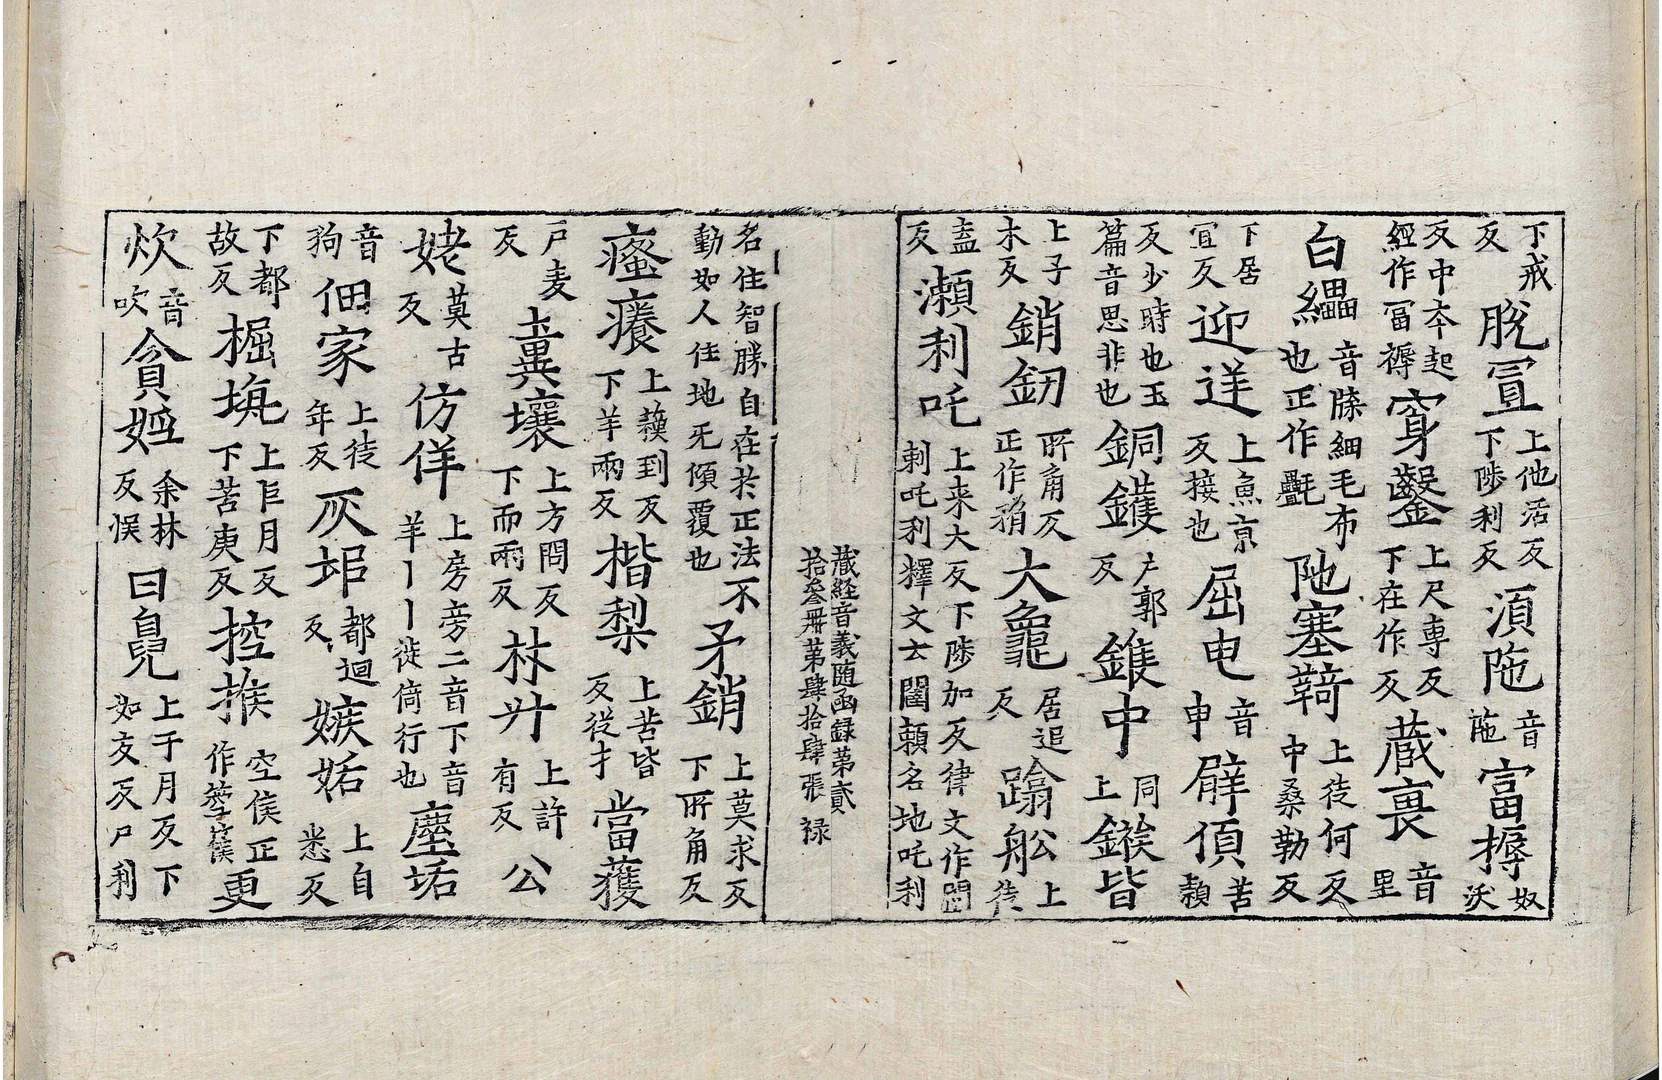 下戒反 脫冝 上他活反下陟利反 湏陁 音陁 富㨶 奴沃
反中夲起經作冨褥 穿鑿 上尺專反下在作反 蔵裏 音里
白㲲 音牒細毛布也正作㲲 陁塞鞫 上徒何反中桑勒反
下居冝反 迎逆 上魚亰反接也 屈申 音申 擗傾 苦穎
反少時也玉篇音思非也 銅鑊 户郭反 錐中 同上 鏃皆
上子木反 銷釰 所角反正作矟 大龜 居追反 蹹舩 上徒
盍反 瀬利吒 上来大反下陟加反律文作罽剌吒利釋文云闔頼名地吒利
蔵経音義随函録第貳拾叅冊第肆拾肆張 禄
名住智勝自在於正法不動如人住地无傾覆也 矛銷 上莫求反下所角反
瘙癢 上蘓到反下羊兩反 楷梨 上苦皆反従扌 當獲
户麦反 糞壤 上方問反下而兩反 林廾 上許有反 公
姥 莫古反 仿佯 上房旁二音下音羊丨丨徙倚行也 塵垢
音狗 佃家 上徒年反 灰𡊅 都迴反 嫉妬 上自悉反
下都故反 掘坑 上巨月反下苦庚反 控㨅 空侯正作箜篌 更
炊 音吹 貪婬 余林反悮 曰皃 上于月反下如友反尸利